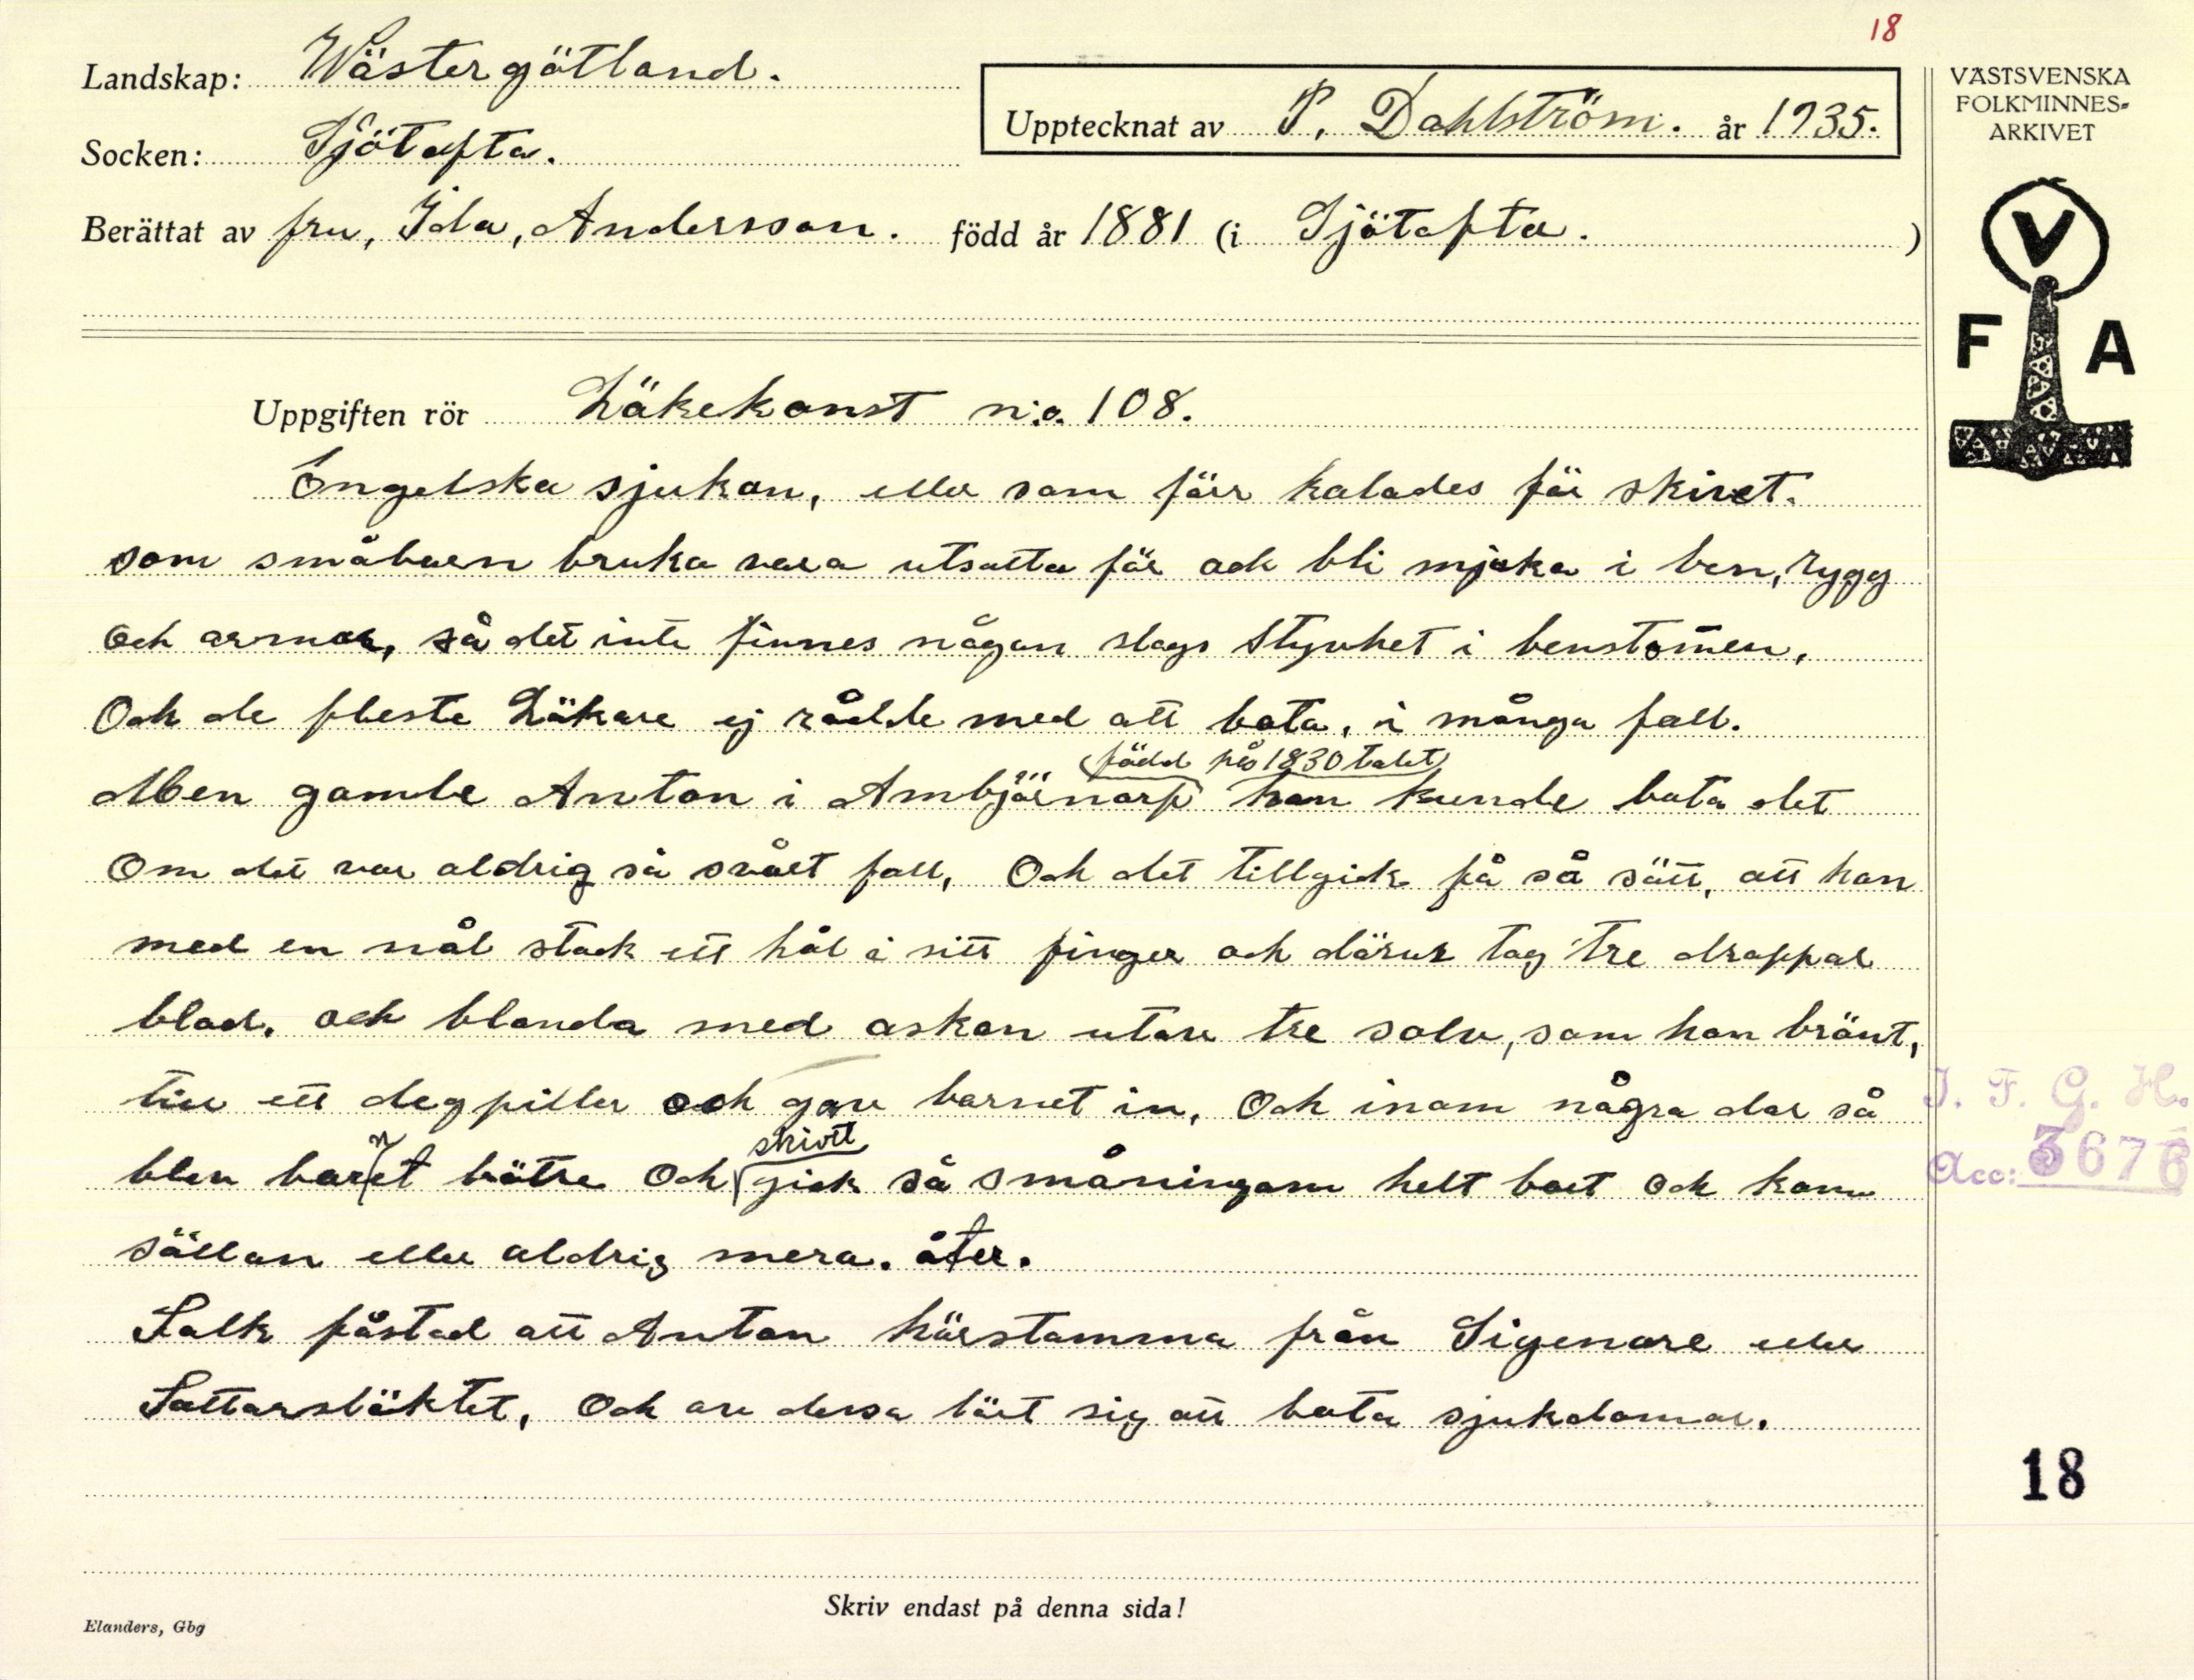 18
Landskap: Wästergötland.
Socken: Sjötofta.
Upptecknat av P. Dahlström. år 1935.
Berättat av fru, Ida, Andersson. född år 1881 (i Sjötofta. )
VÄSTSVENSKA
FOLKMINNES-
ARKIVET
V
F A
Uppgiften rör Läkekonst n:o. 108.
Engelska sjukan, eller som förr kalades för skivet.
som småbarn bruka vara utsatta för och bli mjuka i ben, rygg
och armar, så det inte finnes någon slags styvhet i benstomen,
Och de fleste Läkare ej rådde med att bota, i många fall.
(född på 1830 talet)
Men gamle Anton i Ambjörnarp han kunde bota det
Om det var aldrig så svårt fall, Och det tillgick på så sätt, att han
med en nål stack ett hål i sitt finger och därur tog tre droppar
blod, och blanda med askan utav tre solv, som han bränt,
till ett degpiller och gav barnet in, Och inom några dar så
blev barnet bätre Och skivet gick så småningom helt bort och kom
sällan eller aldrig mera. åter.
Folk påstod att Anton härstamma från Sigenare eller
Tattarsläktet, Och av dessa lärt sig att bota sjukdomar.
I. F. G. H.
Acc: 3676
18
Skriv endast på denna sida!
Elanders, Gbg